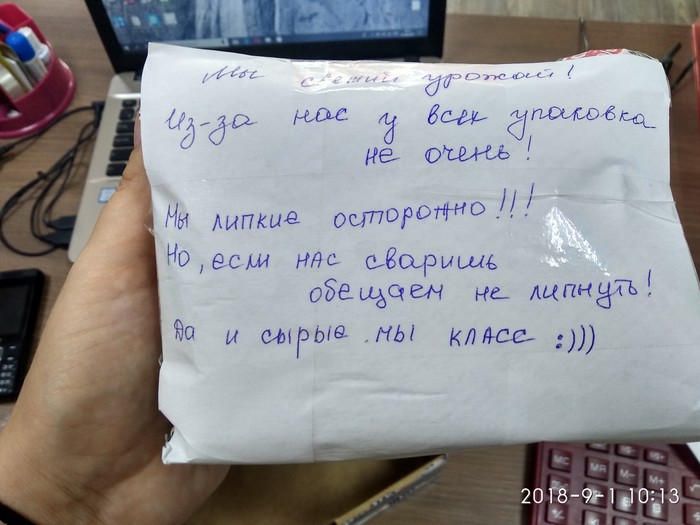 Мы свежий урожай!
Из-за нас у всех упаковка
не очень!
Мы липкие осторожно!!!
Но, если нас сваришь
обещаем не липнуть!
Да и сырые мы класс :)))
MC
MR
M-
M+
2018-9-1 10:13